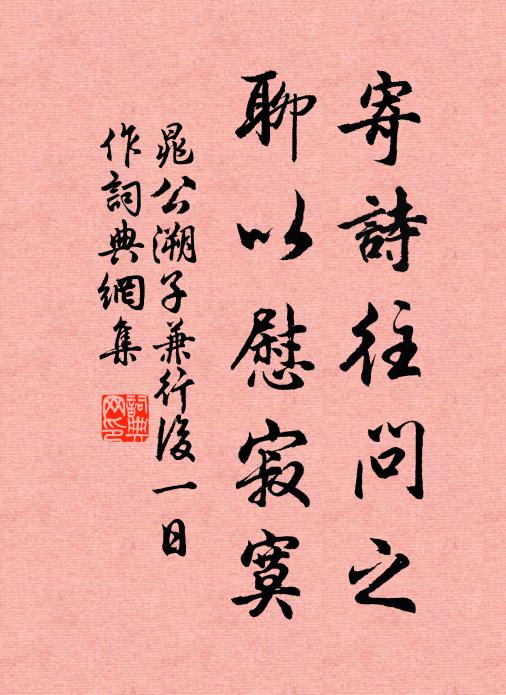 寄詩往問之
聊以慰寂寞
晁公溯子兼行後一日
作詞典網集
詞典
网印